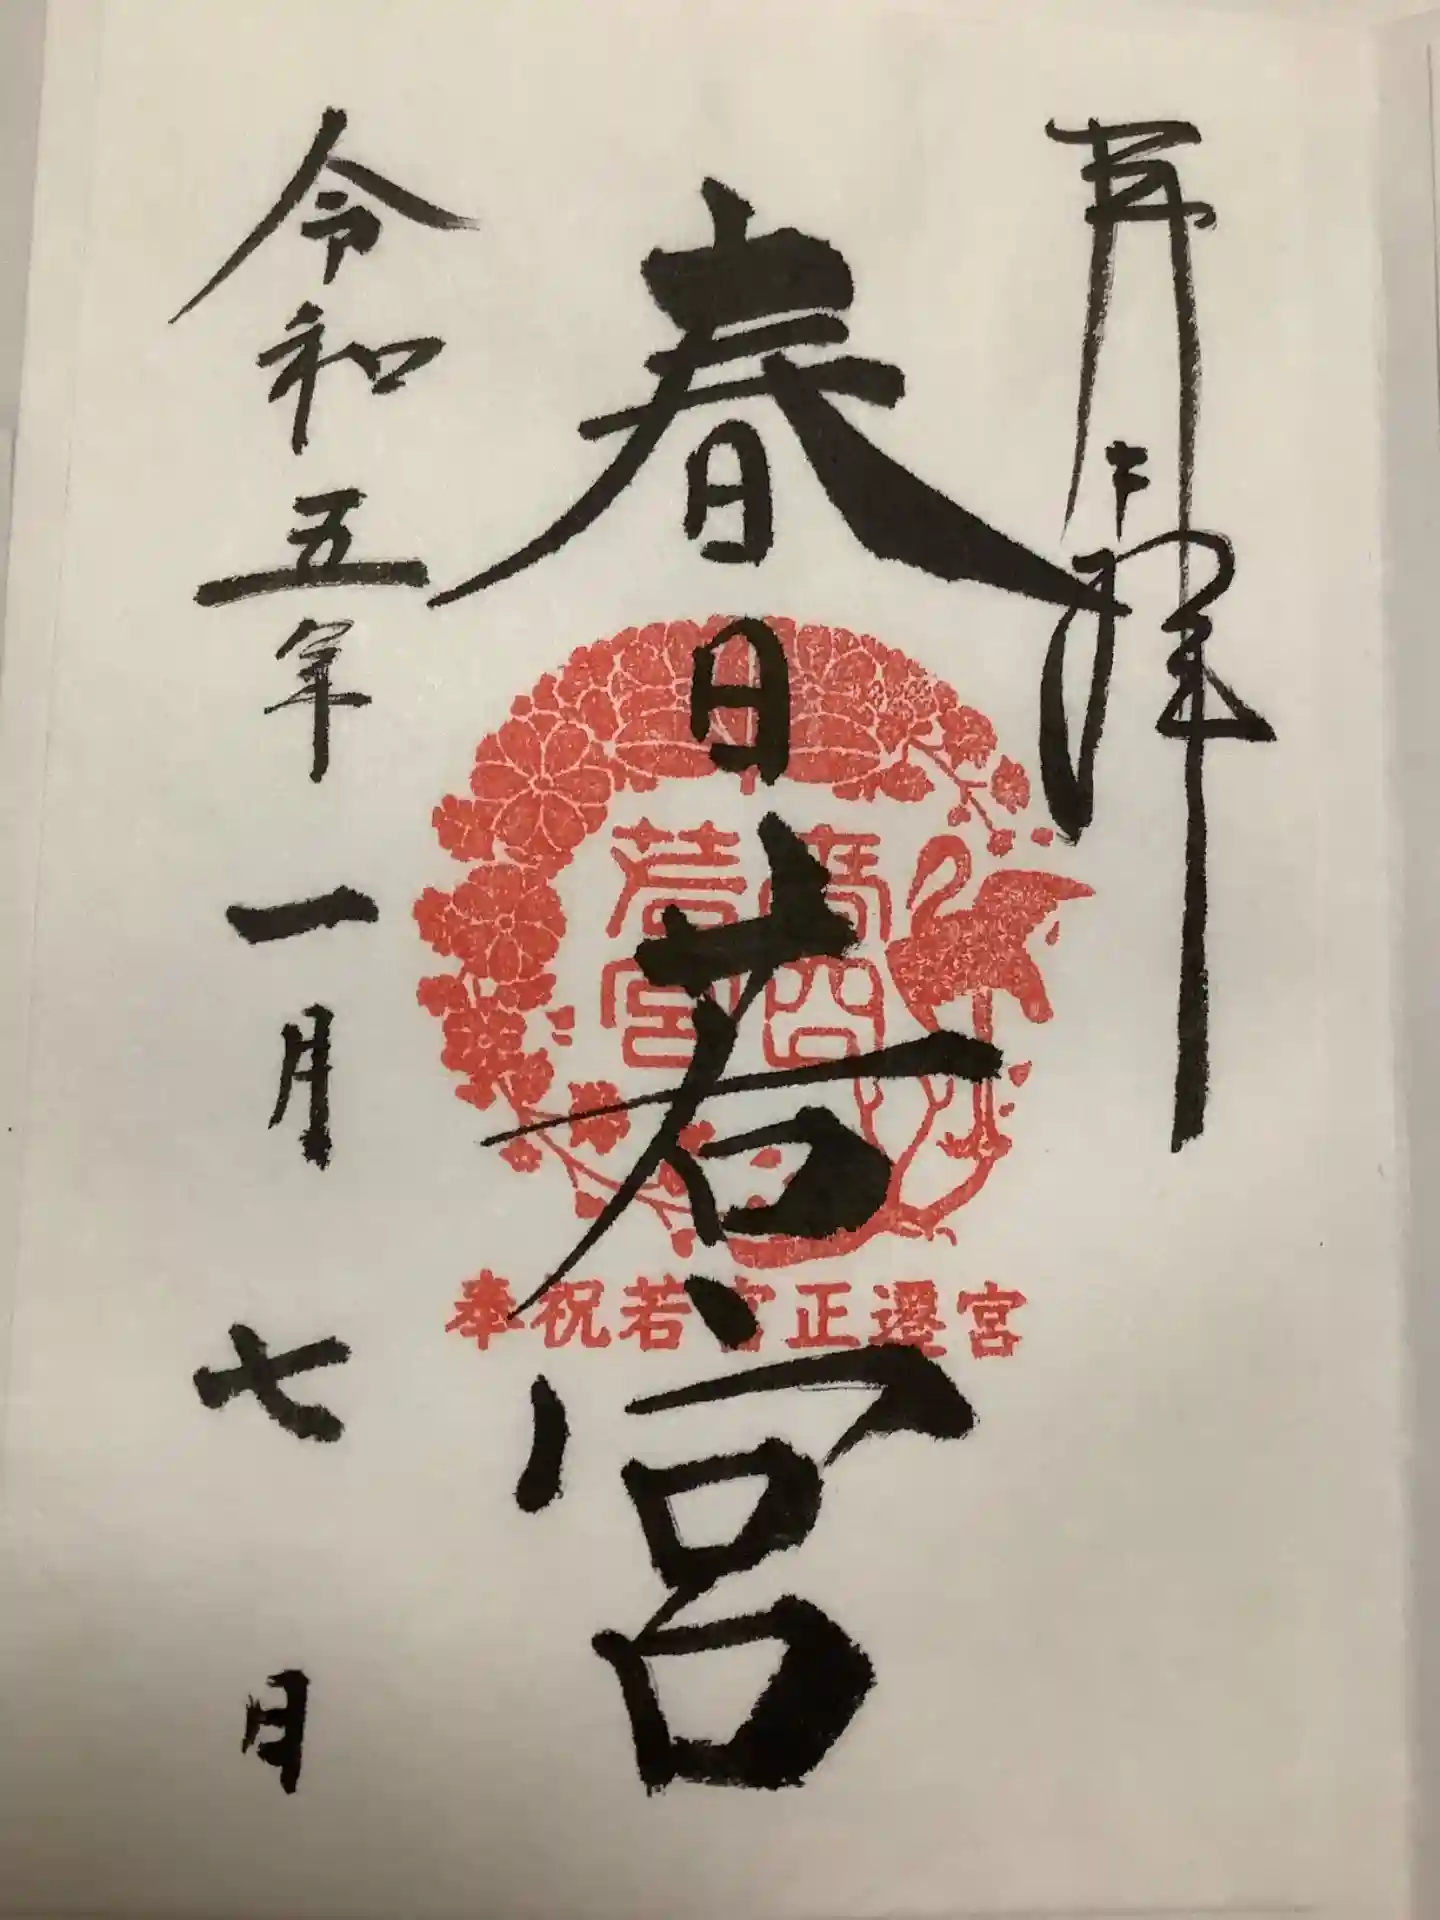 奉拝
春日若宮
若宮
奉祝若宮正遷宮
令和五年一月七日